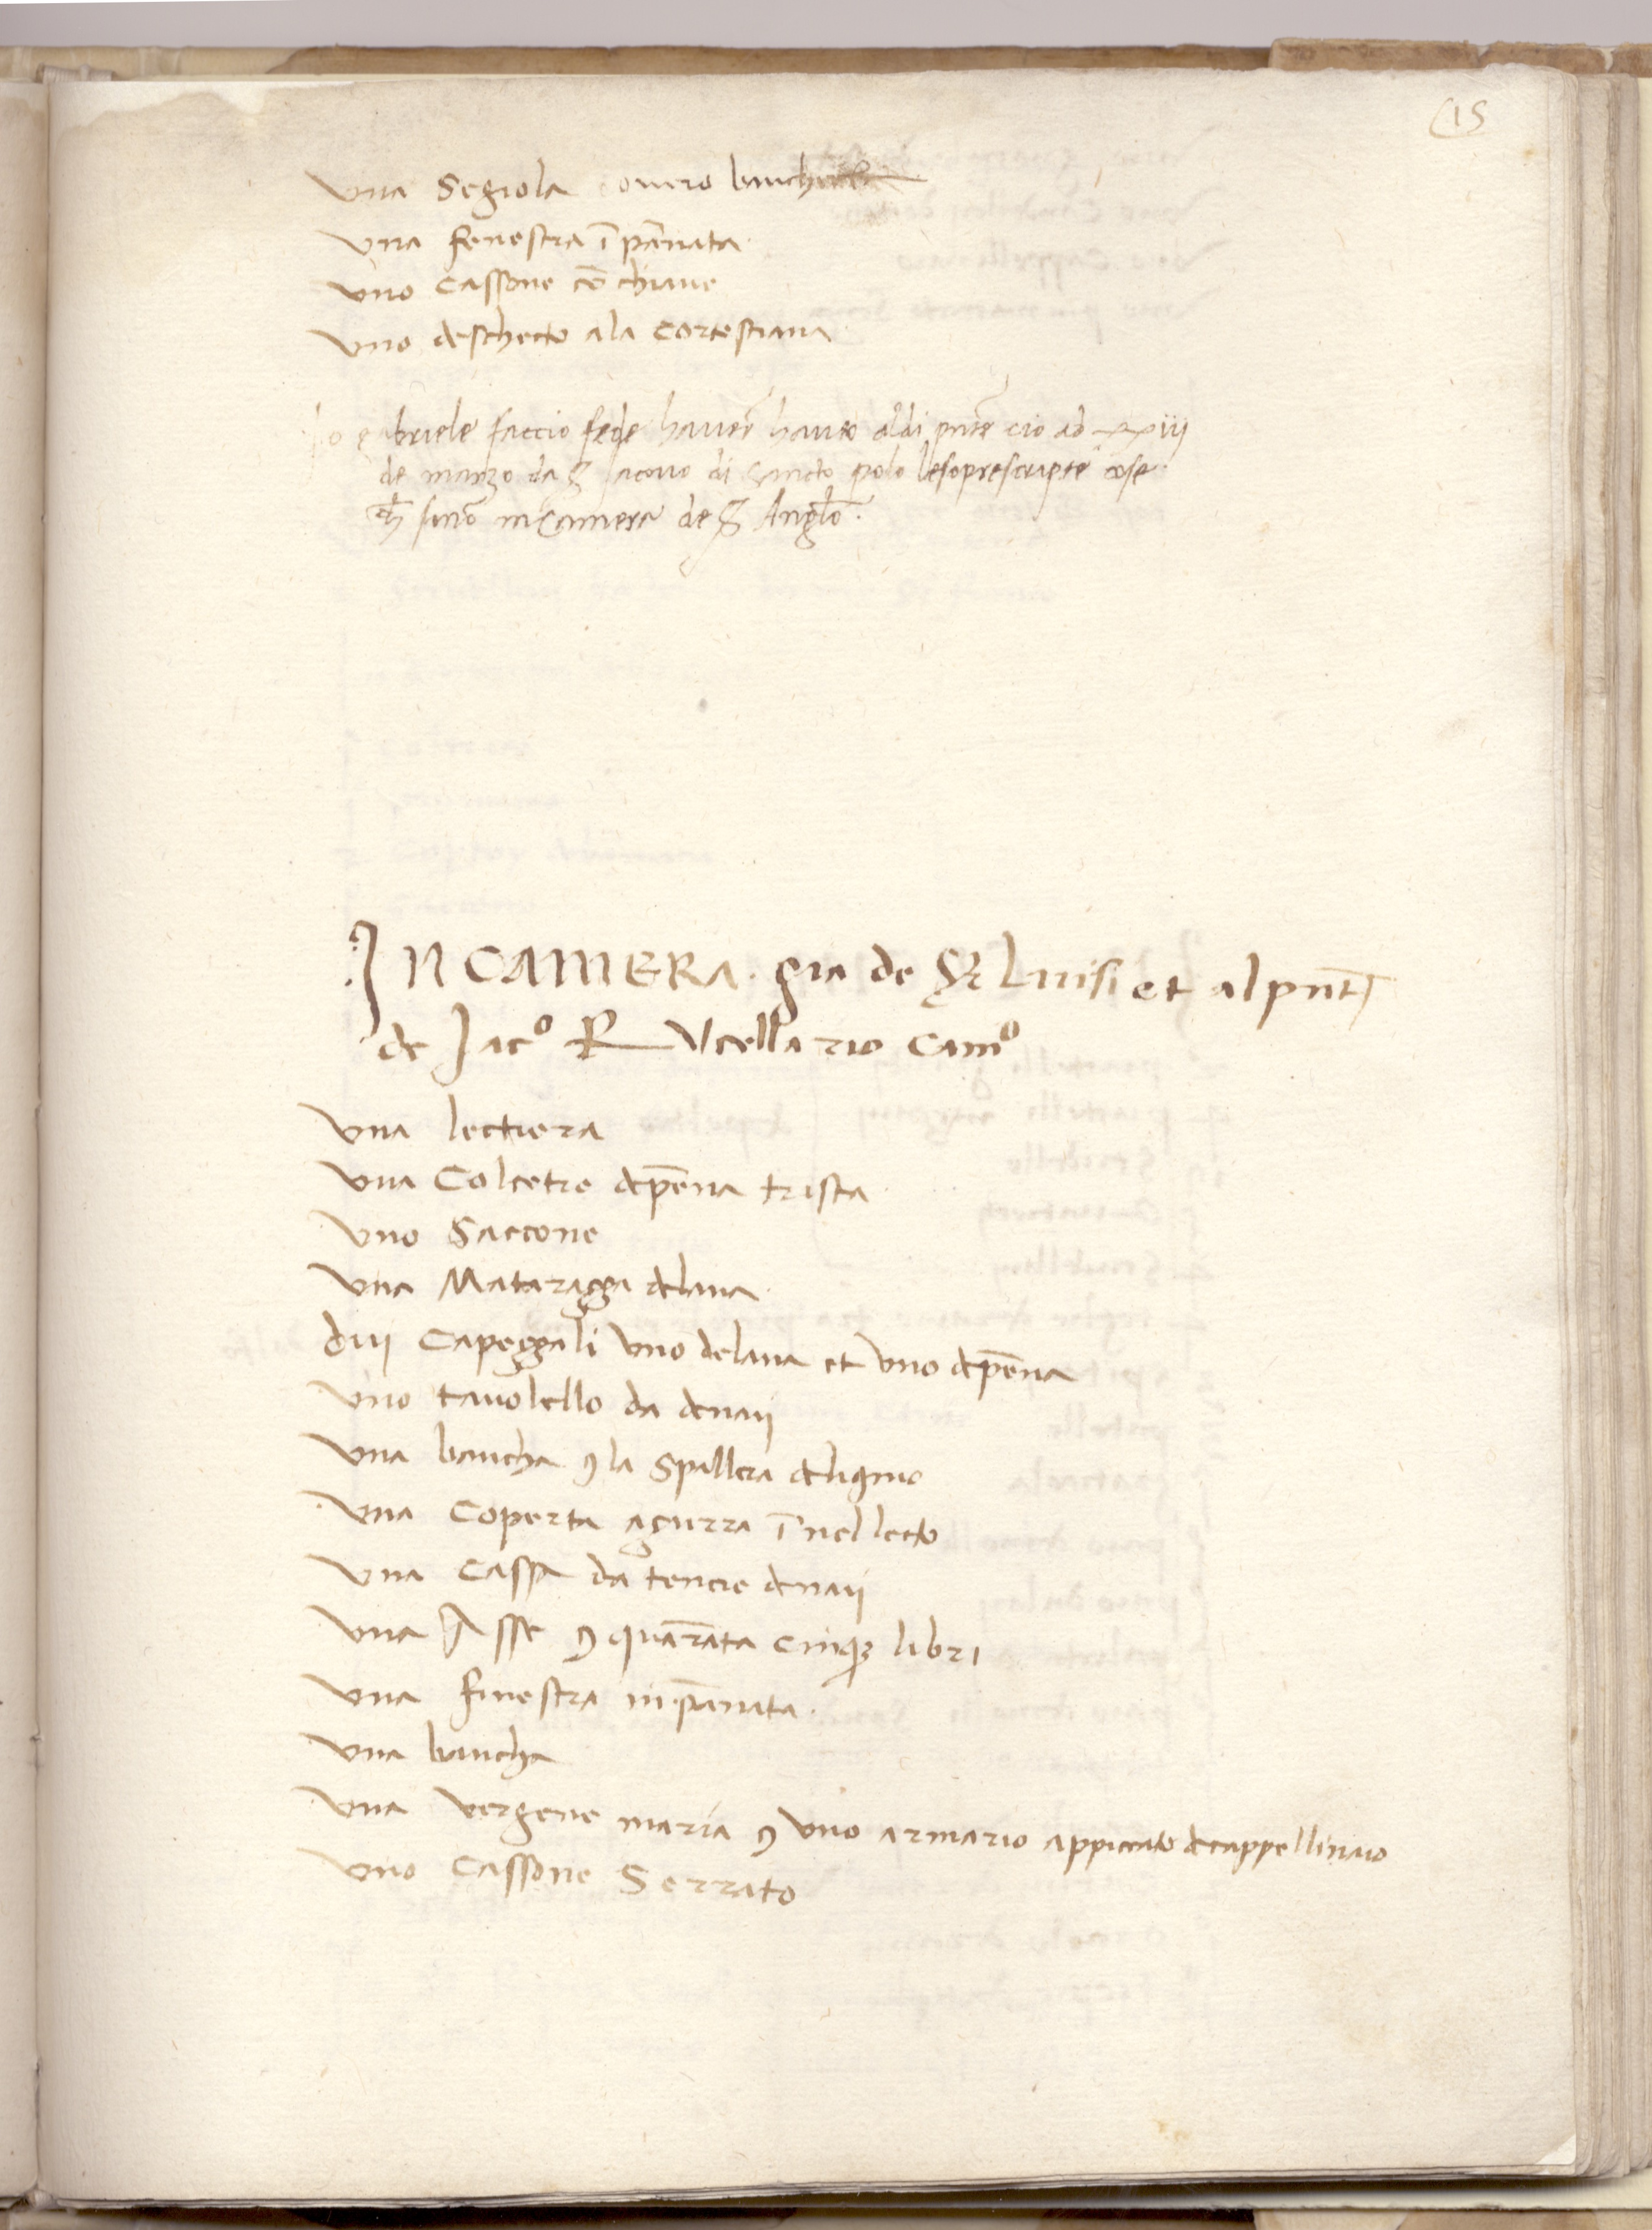 15
Una Segiola overo banch
Una fenestra ĩpãnata
Uno Cassone cõ chiave
Uno deschecto ala Cortesciana
Io gabriele faccio fede haver havuto aldi pñte cio ad xxiij
de marzo da S Iacovo di Sancto polo lesoprescripte cose
in Camera de S Angło.
IN CAMERA. gia de Sr Luisi et al pñt
de Jac° R Ucellario Cam°
Una lectiera
Una Colcetre depẽna trista
Uno Saccone
Una Mataragga delana
dui Capeggali Uno delana et Uno depẽna
Uno tavolello da denaij
Una bancha 9 la Spallera deligno
Una Coperta açurra ĩ nel lecto
Una Cassa da tenere denaij
Una Asse 9 quarãta cinq3 libri
Una finestra in pãnata.
Una bancha
Una Vergene maria 9 Uno armario appiccato decappellinaio
Uno Cassone Serrato